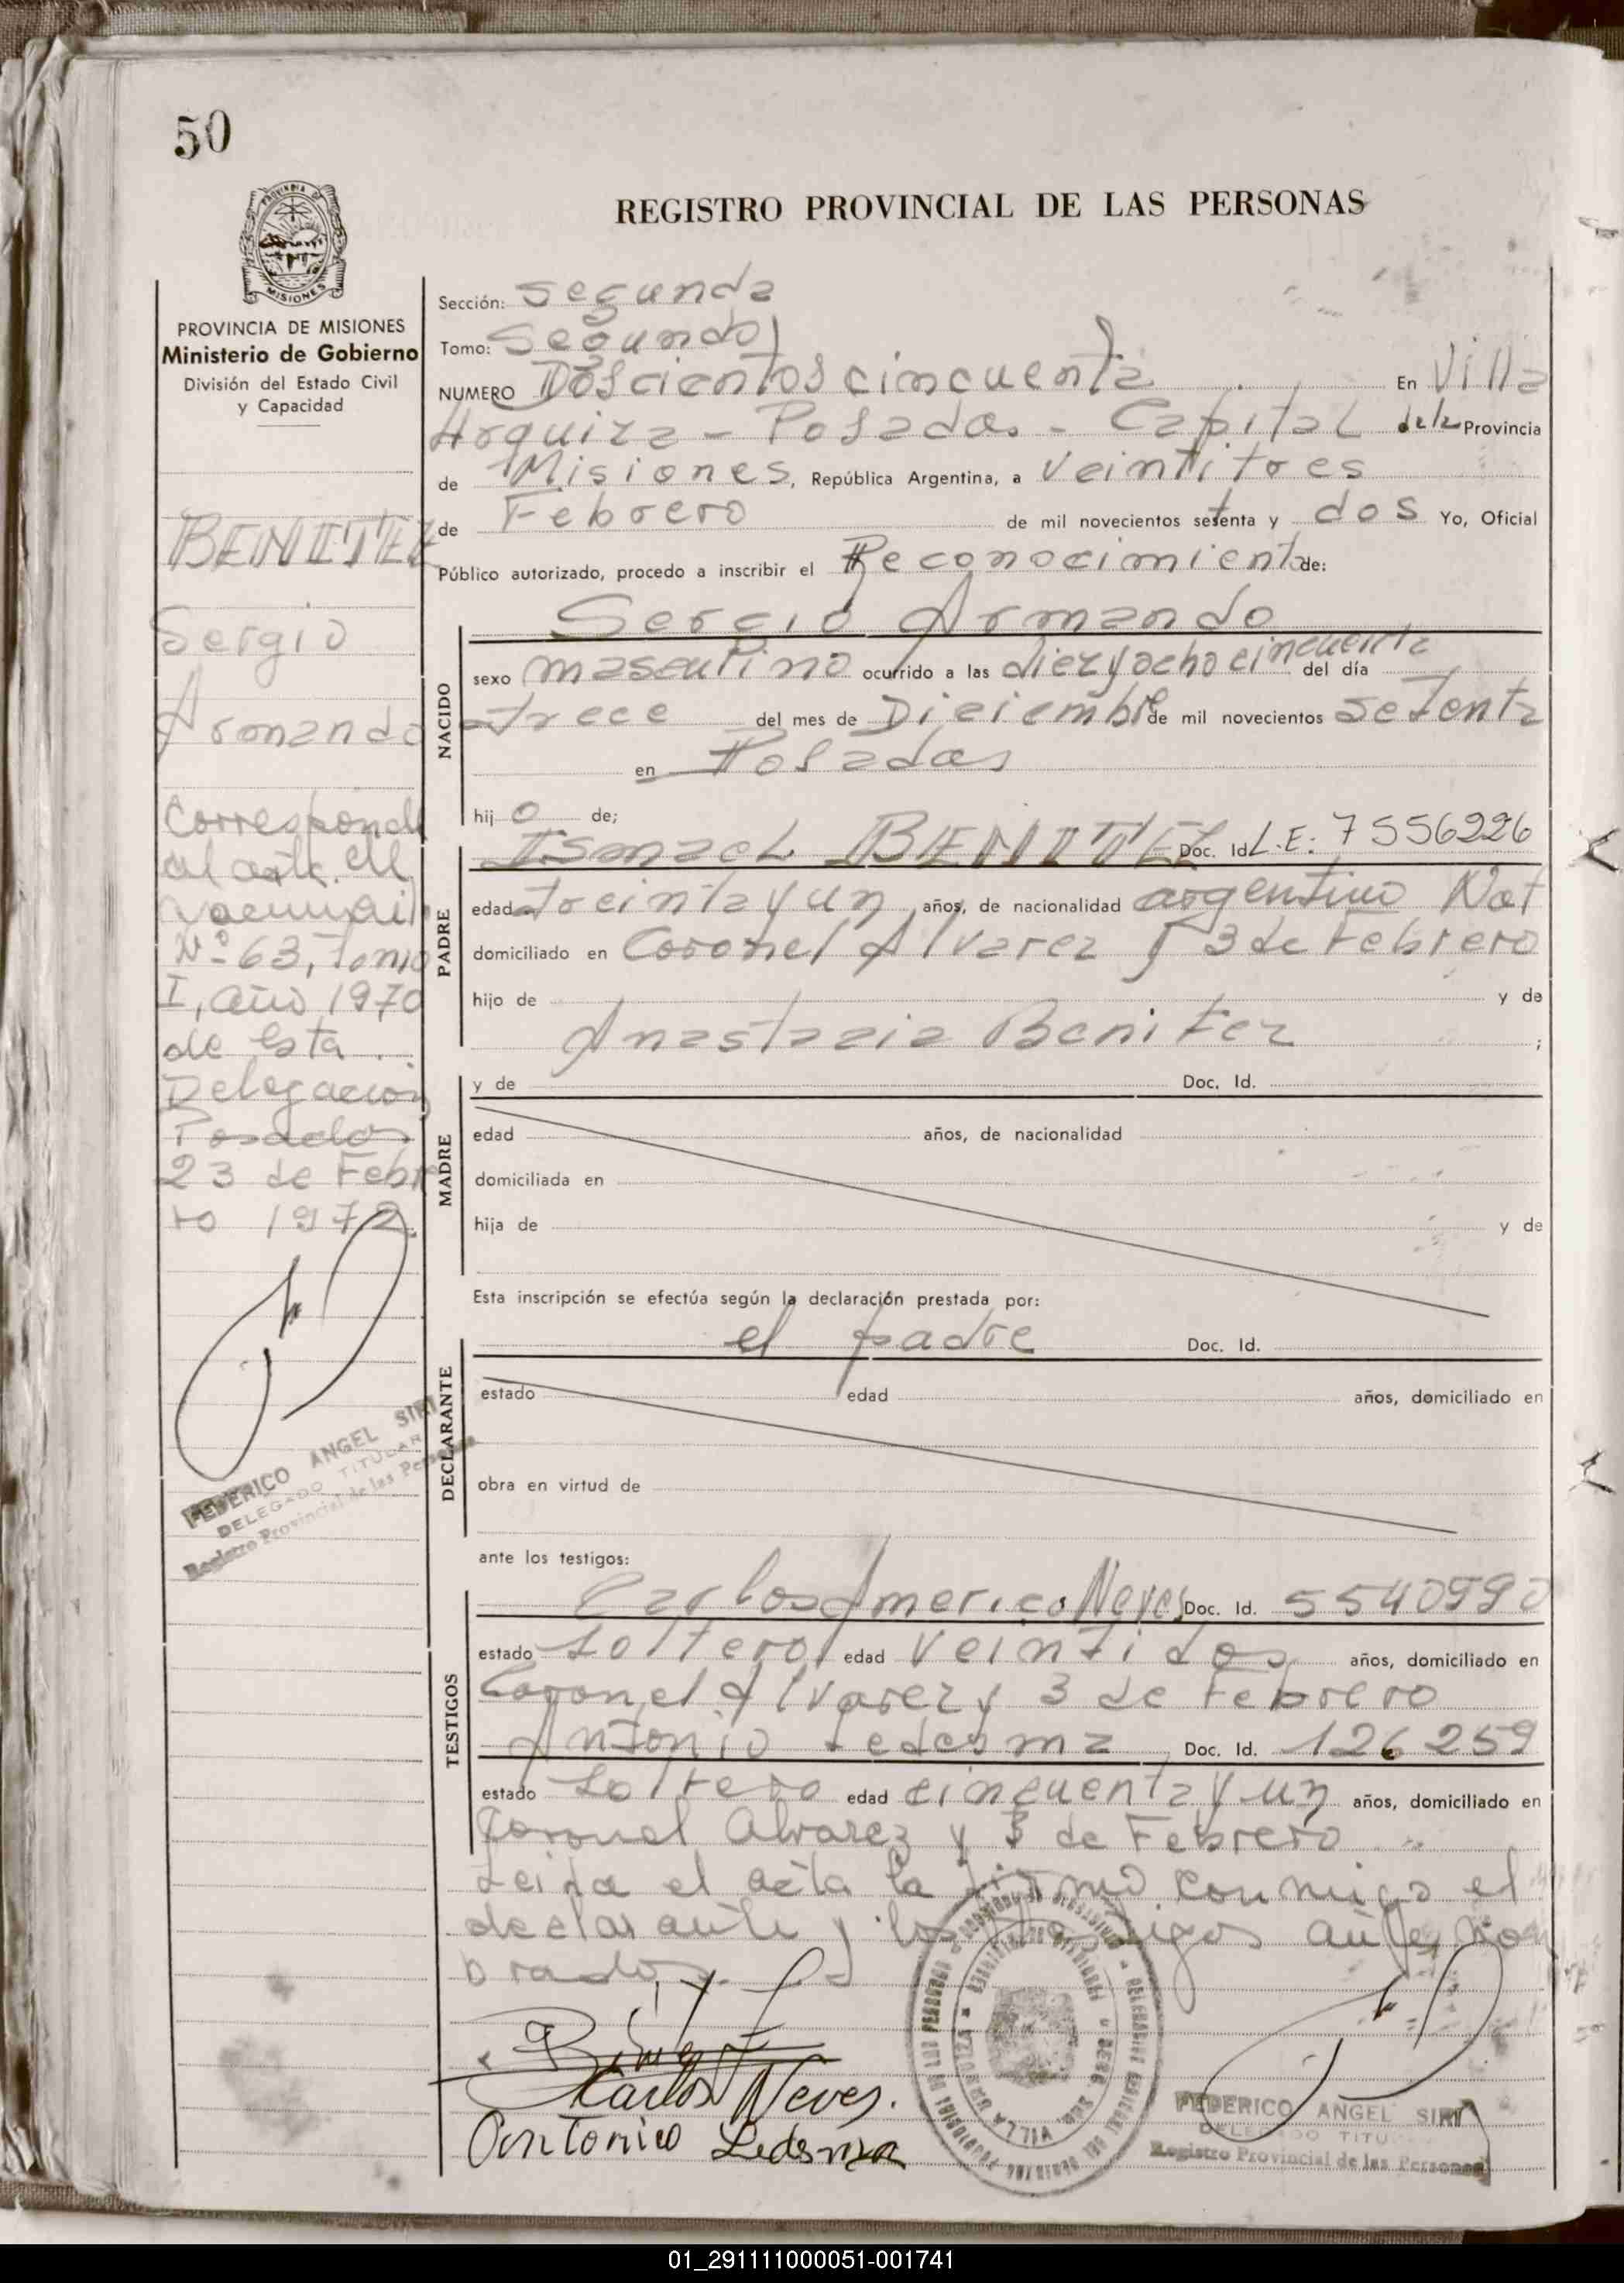 50
REGISTRO PROVINCIAL DE LAS PERSONAS
PROVINCIA DE MISIONES
Ministerio de Gobierno
División del Estado Civil
y Capacidad
BENITEZ
Sergio
Armando
Corresponde
al acta de
Nº 63, tomo
I, año 1970
de esta
Delegación
Posadas
23 de Febre
ro 1972.
FEDERICO ANGEL SIRI
DELEGADO TITULAR
Registro Provincial de las Personas
Sección: Segunda
Tomo: Segundo
NUMERO Doscientos cincuenta En Villa
Urquiza - Posadas - Capital de la Provincia
de Misiones, República Argentina, a veintitres
de Febrero de mil novecientos setenta y dos Yo, Oficial
Público autorizado, procedo a inscribir el Reconocimiento de:
Sergio Armando
NACIDO
sexo masculino ocurrido a las diez y ocho cincuenta del día
trece del mes de Diciembre de mil novecientos setenta
en Posadas
hijo de;
PADRE
Ismael BENITEZ Doc. Id L.E: 7556226
edad treinta y un años, de nacionalidad argentino Nat
domiciliado en Coronel Alvarez y 3 de Febrero
hijo de y de
Anastacia Benitez ;
MADRE
y de Doc. Id.
edad años, de nacionalidad
domiciliada en
hija de y de
Esta inscripción se efectúa según la declaración prestada por:
DECLARANTE
el padre Doc. Id.
estado edad años, domiciliado en
obra en virtud de
ante los testigos:
TESTIGOS
Carlos Americo Neves Doc. Id. 5540990
estado soltero edad veintidos años, domiciliado en
Coronel Alvarez y 3 de Febrero
Antonio Ledesma Doc. Id. 126259
estado soltero edad cincuenta y un años, domiciliado en
Coronel Alvarez y 3 de Febrero
Leida el acta la firmó conmigo el
declarante y los testigos antes nom
brados.
Carlos Neves.
Antonio Ledesma
FEDERICO ANGEL SIRI
DELEGADO TITU
Registro Provincial de las Personas
01_291111000051-001741